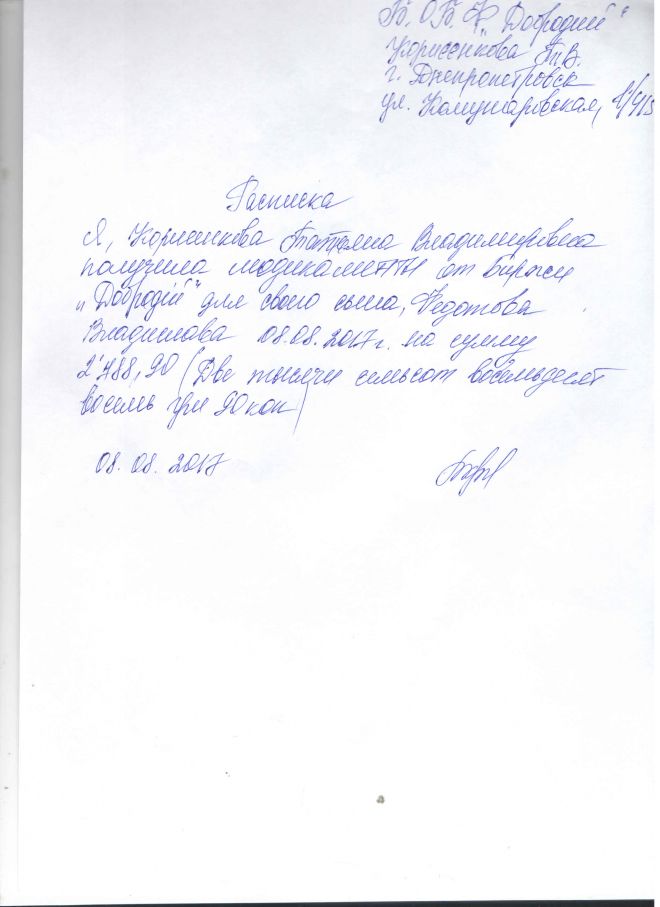 Б. О Б. Ф „Добродий"
Корнеенкова Т.В.
г. Днепропетровск
ул. Комунаровская,
Расписка
Я, Корнеенкова Татьяна Владимировна
получила медикаменты от Биржи
„Добродій" для своего сына, Федотова
Владислава 08.08.2017г. на сумму
2'788,90 (Две тысячи семьсот восемьдесят
восемь грн 90 коп)
08. 08. 2017